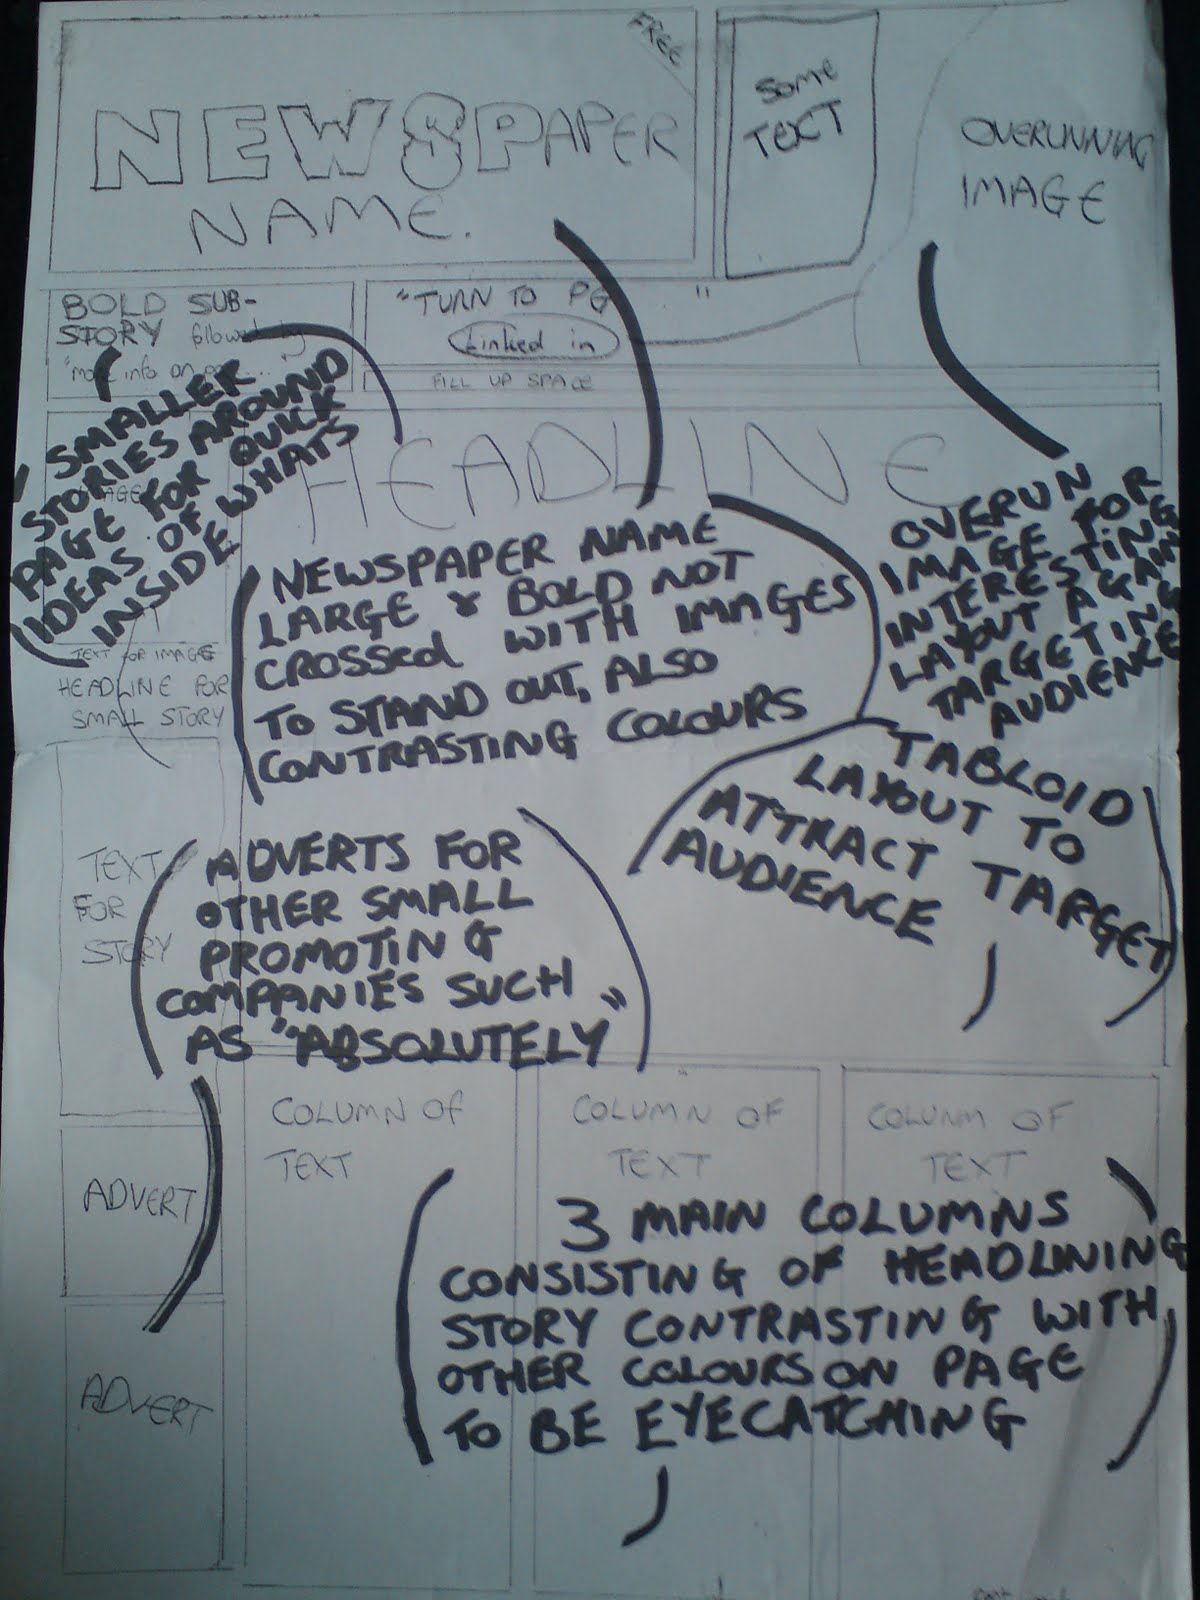 FREE
NEWSPAPER
NAME.
SOME
TEXT
OVERUNNING
IMAGE
BOLD SUB-
STORY followed by
"more info on
"TURN TO PG "
Linked in
FILL UP SPACE
HEADLINE
- SMALLER
STORIES AROUND
PAGE FOR QUICK
IDEAS OF WHATS
INSIDE
TEXT FOR IMAGE
HEADLINE FOR
SMALL STORY
NEWSPAPER NAME
LARGE & BOLD NOT
CROSSED WITH IMAGES
TO STAND OUT, ALSO
CONTRASTING COLOURS
OVERUN
IMAGE FOR
INTERESTING
LAYOUT AGAIN
TARGETING
AUDIENCE
TABLOID
LAYOUT TO
ATTRACT TARGET
AUDIENCE
TEXT
FOR
STORY
ADVERTS FOR
OTHER SMALL
PROMOTING
COMPANIES SUCH
AS "ABSOLUTELY"
COLUMN OF
TEXT
COLUMN OF
TEXT
COLUNM OF
TEXT
ADVERT
ADVERT
3 MAIN COLUMNS
CONSISTING OF HEADLINING
STORY CONTRASTING WITH
OTHER COLOURS ON PAGE
TO BE EYECATCHING